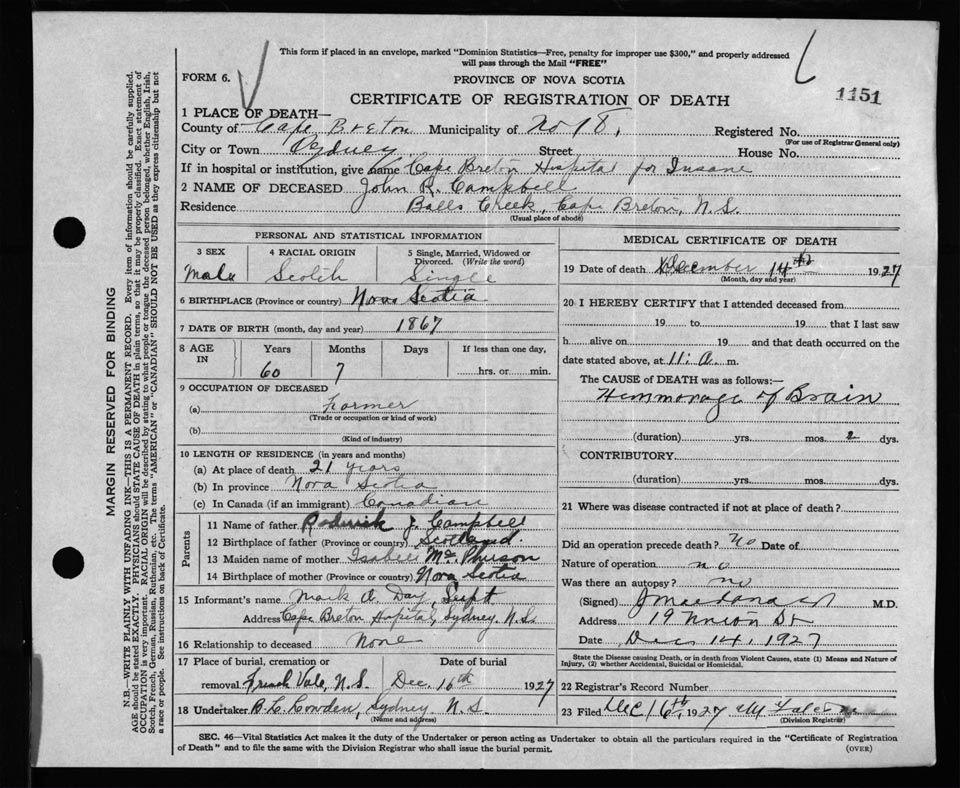 This form if placed in an envelope, marked "Dominion Statistics—Free, penalty for improper use $300," and properly addressed
will pass through the Mail "FREE"
FORM 6.
PROVINCE OF NOVA SCOTIA
1151
CERTIFICATE OF REGISTRATION OF DEATH
1 PLACE OF DEATH—
County of Cape Breton Municipality of No 18. Registered No.
(For use of Registrar General only)
City or Town Sydney Street House No.
If in hospital or institution, give name Cape Breton Hospital for Insane
2 NAME OF DECEASED John R. Campbell
Residence Balls Creek, Cape Breton, N.S.
(Usual place of abode)
PERSONAL AND STATISTICAL INFORMATION
3 SEX 4 RACIAL ORIGIN 5 Single, Married, Widowed or
Divorced. (Write the word)
Male Scotch Single
6 BIRTHPLACE (Province or country) Nova Scotia
7 DATE OF BIRTH (month, day and year) 1867
8 AGE IN Years Months Days If less than one day,
60 7 hrs. or min.
9 OCCUPATION OF DECEASED
(a) Farmer
(Trade or occupation or kind of work)
(b)
(Kind of industry)
10 LENGTH OF RESIDENCE (in years and months)
(a) At place of death 21 years
(b) In province Nova Scotia
(c) In Canada (if an immigrant) Canadian
Parents
11 Name of father Roderick J. Campbell
12 Birthplace of father (Province or country) Scotland.
13 Maiden name of mother Isabell McPherson
14 Birthplace of mother (Province or country) Nova Scotia
15 Informant's name Mark A. Day, Supt
Address Cape Breton Hospital, Sydney, N.S.
16 Relationship to deceased None
17 Place of burial, cremation or Date of burial
removal French Vale, N.S. Dec. 16th 1927
18 Undertaker B.C. Cowden, Sydney N.S.
(Name and address)
MEDICAL CERTIFICATE OF DEATH
19 Date of death December 14th 1927
(Month, day and year)
20 I HEREBY CERTIFY that I attended deceased from
19 to 19 that I last saw
h alive on 19 and that death occurred on the
date stated above, at 11: a. m.
The CAUSE of DEATH was as follows:—
Hemmorage of Brain
(duration) yrs. mos. 2 dys.
CONTRIBUTORY
(duration) yrs. mos. dys.
21 Where was disease contracted if not at place of death?
Did an operation precede death? No Date of
Nature of operation no
Was there an autopsy? no
(Signed) M.D.
Address 19 Union St
Date Dec 14, 1927
State the Disease causing Death, or in death from Violent Causes, state (1) Means and Nature of
Injury, (2) whether Accidental, Suicidal or Homicidal.
22 Registrar's Record Number
23 Filed Dec 16th, 1927
(Division Registrar)
SEC. 46—Vital Statistics Act makes it the duty of the Undertaker or person acting as Undertaker to obtain all the particulars required in the "Certificate of Registration
of Death" and to file the same with the Division Registrar who shall issue the burial permit.
(OVER)
MARGIN RESERVED FOR BINDING
N.B.—WRITE PLAINLY WITH UNFADING INK—THIS IS A PERMANENT RECORD. Every item of information should be carefully supplied.
AGE should be stated EXACTLY. PHYSICIANS should STATE CAUSE OF DEATH in plain terms, so that it may be properly classified. Exact statement of
OCCUPATION is very important. RACIAL ORIGIN will be described by stating to what people or tongue the deceased person belonged, whether English, Irish,
Scotch, French, German, Russian, Ruthenian, etc. The terms "AMERICAN" or "CANADIAN" SHOULD NOT BE USED as they express citizenship but not
a race or people. See instructions on back of Certificate.